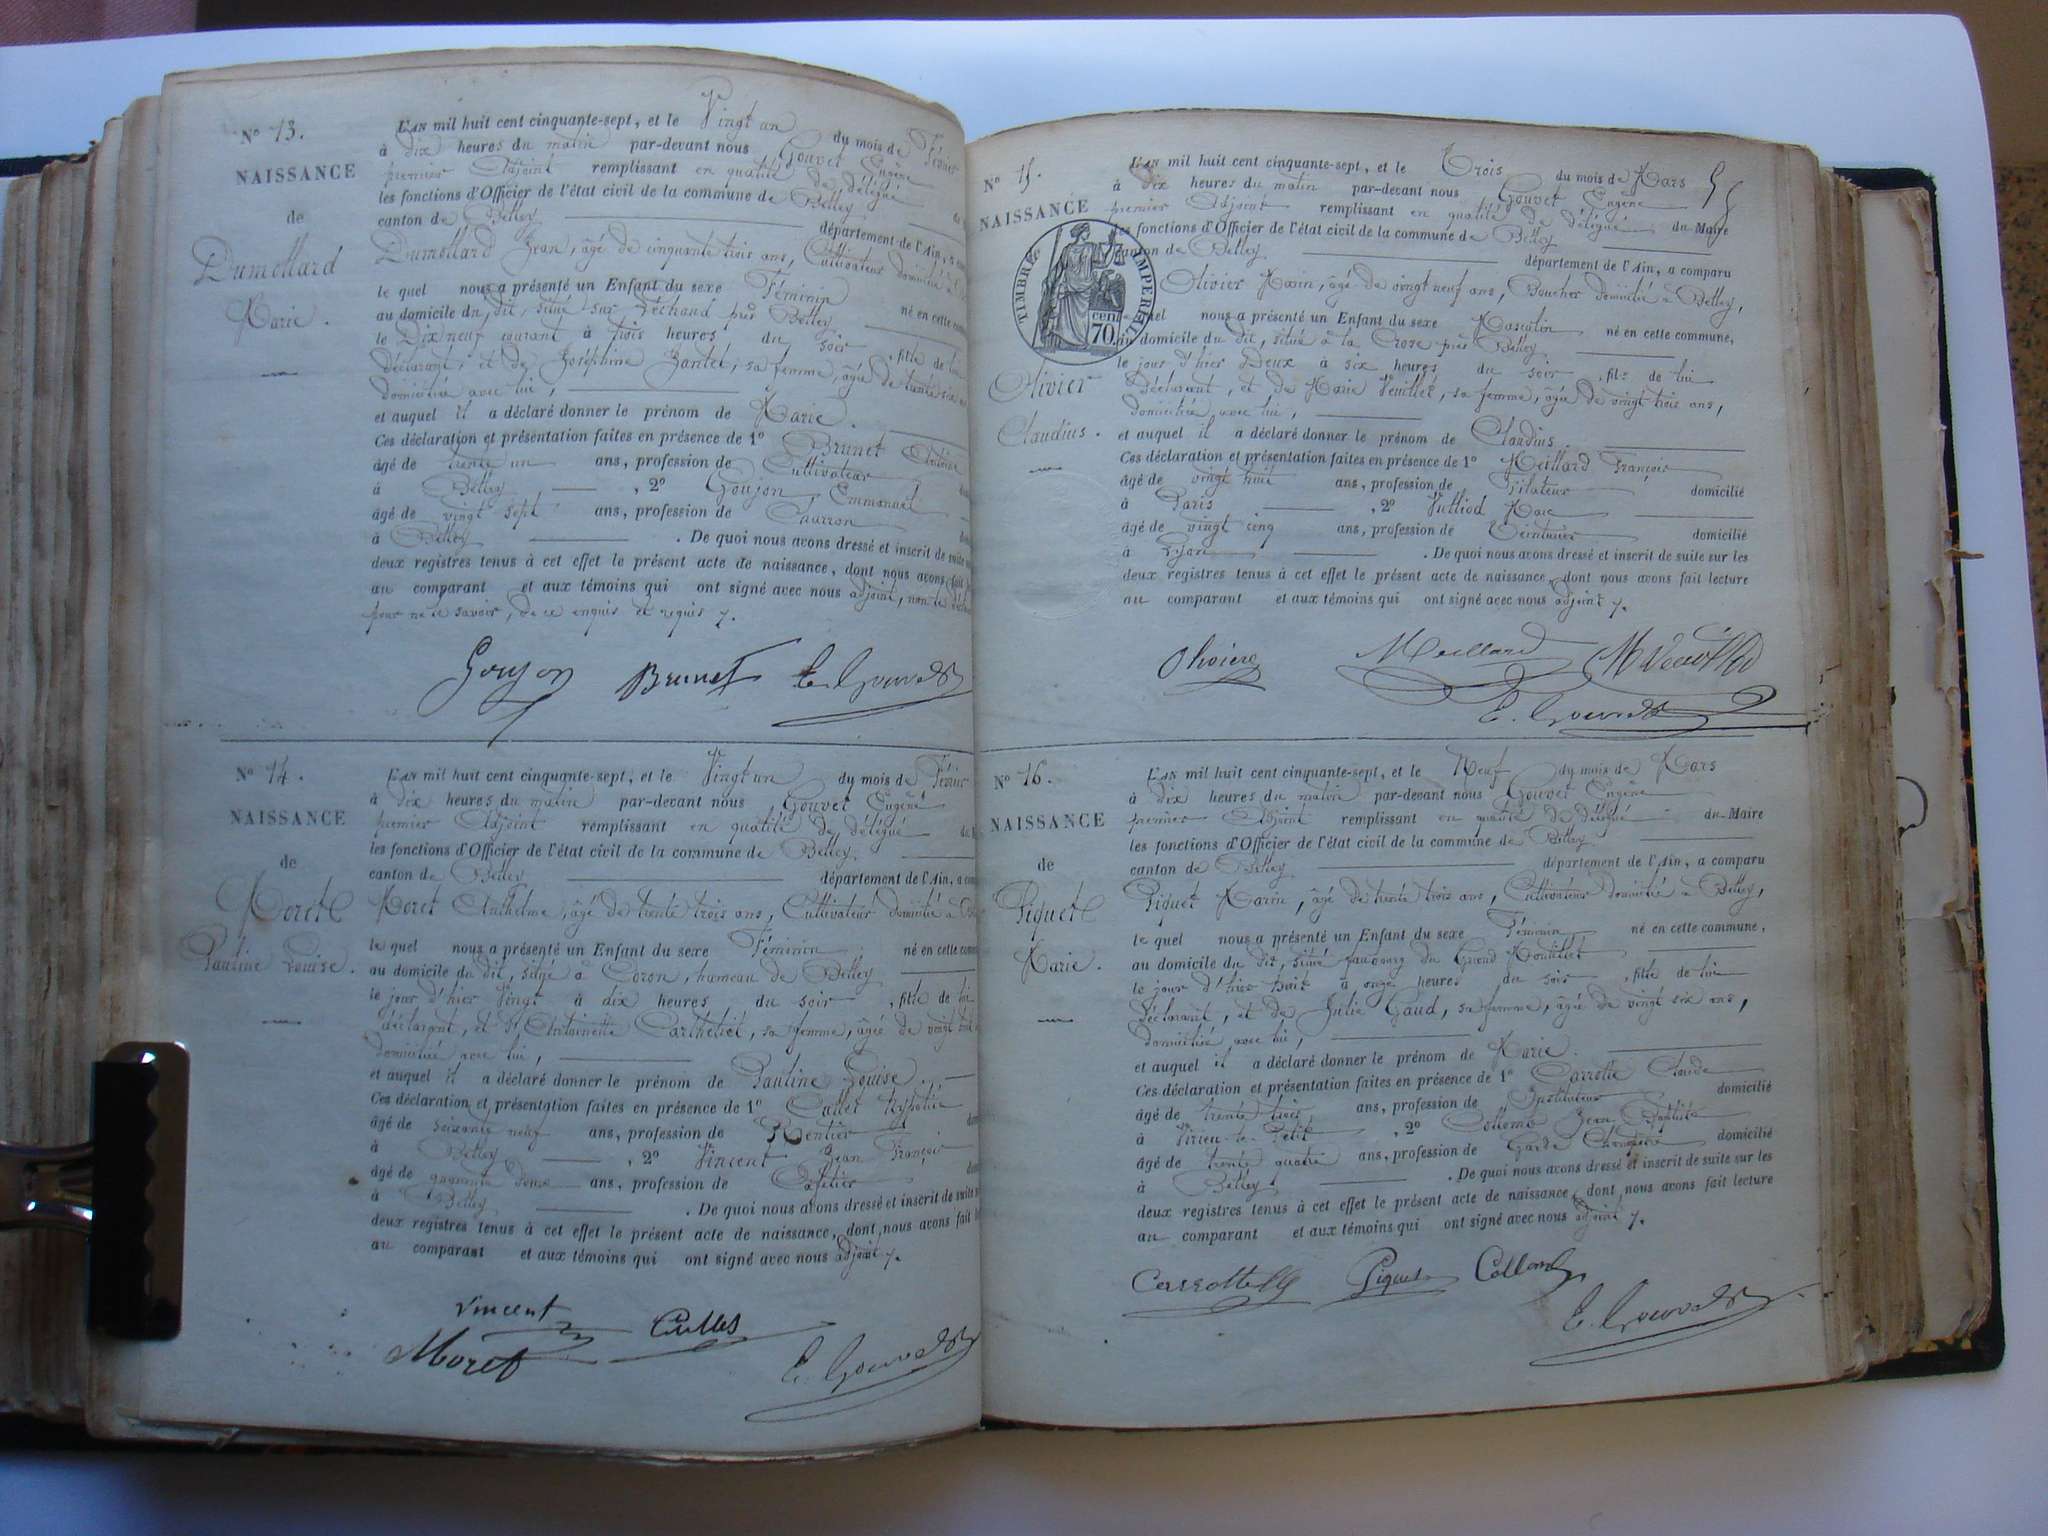 Nº 13.
NAISSANCE
de
Dumollard
Marie.
L'AN mil huit cent cinquante-sept, et le Vingt un du mois de Février
à dix heures du matin par-devant nous Gouvet Eugène
premier Adjoint remplissant en qualité de délégué
les fonctions d'Officier de l'état civil de la commune de Belley
canton de Belley département de l'Ain, a
Dumollard Jean, âgé de cinquante trois ans, Cultivateur domicilié à
le quel nous a présenté un Enfant du sexe Féminin né en cette
au domicile du dit, situé sur Léchaud près Belley
le Dix neuf courant à trois heures du soir, fille de lui
déclarant, et de Joséphine Jantet, sa femme, âgée de trente six
domiciliée avec lui,
et auquel il a déclaré donner le prénom de Marie.
Ces déclaration et présentation faites en présence de 1º Brunet Antoine
âgé de trente un ans, profession de Cultivateur
à Belley, 2º Goujon Emmanuel
âgé de vingt sept ans, profession de Charron
à Belley. De quoi nous avons dressé et inscrit de suite
deux registres tenus à cet effet le présent acte de naissance, dont nous avons fait
au comparant et aux témoins qui ont signé avec nous adjoint, non le
pour ne le savoir, de ce enquis et requis ץ.
Goujon Brunet E. Gouvet
Nº 14.
NAISSANCE
de
Moret
Pauline Louise.
L'AN mil huit cent cinquante-sept, et le Vingt un du mois de Février
à dix heures du matin par-devant nous Gouvet Eugène
premier Adjoint remplissant en qualité de délégué
les fonctions d'Officier de l'état civil de la commune de Belley
canton de Belley département de l'Ain, a
Moret Anthelme, âgé de trente trois ans, Cultivateur domicilié à
le quel nous a présenté un Enfant du sexe Féminin né en cette
au domicile du dit, situé à Coron, hameau de Belley
le jour d'hier Vingt à dix heures du soir, fille de lui
déclarant, et d'Antoinette Carthelier, sa femme, âgée de vingt
domiciliée avec lui,
et auquel il a déclaré donner le prénom de Pauline Louise.
Ces déclaration et présentation faites en présence de 1º Cullet
âgé de soixante neuf ans, profession de Rentier
à Belley, 2º Vincent Jean François
âgé de quarante deux ans, profession de Cafetier
à Belley. De quoi nous avons dressé et inscrit de suite
deux registres tenus à cet effet le présent acte de naissance, dont nous avons fait
au comparant et aux témoins qui ont signé avec nous adjoint
Vincent Cullet
Moret E. Gouvet
Nº 15.
NAISSANCE
TIMBRE IMPERIAL
70 cent
Olivier
Claudius.
L'AN mil huit cent cinquante-sept, et le Trois du mois de Mars
à dix heures du matin par-devant nous Gouvet Eugène
premier Adjoint remplissant en qualité de délégué du Maire
les fonctions d'Officier de l'état civil de la commune de Belley
canton de Belley département de l'Ain, a comparu
Olivier Marin, âgé de vingt neuf ans, Boucher domicilié à Belley,
quel nous a présenté un Enfant du sexe Masculin né en cette commune,
au domicile du dit, situé à la Croze près Belley
le jour d'hier Deux à six heures du soir, fils de lui
déclarant, et de Marie Veuillet, sa femme, âgée de vingt trois ans,
domiciliée avec lui,
et auquel il a déclaré donner le prénom de Claudius.
Ces déclaration et présentation faites en présence de 1º Meillard François
âgé de vingt huit ans, profession de domicilié
à Paris, 2º Vulliod Marc
âgé de vingt cinq ans, profession de Teinturier domicilié
à Lyon. De quoi nous avons dressé et inscrit de suite sur les
deux registres tenus à cet effet le présent acte de naissance, dont nous avons fait lecture
au comparant et aux témoins qui ont signé avec nous adjoint
Olivier Meillard
E. Gouvet
Nº 16.
NAISSANCE
de
Piquet
Marie.
L'AN mil huit cent cinquante-sept, et le Neuf du mois de Mars
à dix heures du matin par-devant nous Gouvet Eugène
premier Adjoint remplissant en qualité de délégué du Maire
les fonctions d'Officier de l'état civil de la commune de Belley
canton de Belley département de l'Ain, a comparu
Piquet Marin, âgé de trente trois ans, Cultivateur domicilié à Belley,
le quel nous a présenté un Enfant du sexe Féminin né en cette commune,
au domicile du dit, situé faubourg du Grand Moutillet
le jour d'hier huit à onze heures du soir, fille de lui
déclarant, et de Julie Gaud, sa femme, âgée de vingt six ans,
domiciliée avec lui,
et auquel il a déclaré donner le prénom de Marie.
Ces déclaration et présentation faites en présence de 1º Carrotte Claude
âgé de trente trois ans, profession de Instituteur domicilié
à Virieu-le-Petit, 2º Collomb Jean Baptiste
âgé de trente quatre ans, profession de Garde Champêtre domicilié
à Belley. De quoi nous avons dressé et inscrit de suite sur les
deux registres tenus à cet effet le présent acte de naissance, dont nous avons fait lecture
au comparant et aux témoins qui ont signé avec nous adjoint
Piquet Collomb
E. Gouvet